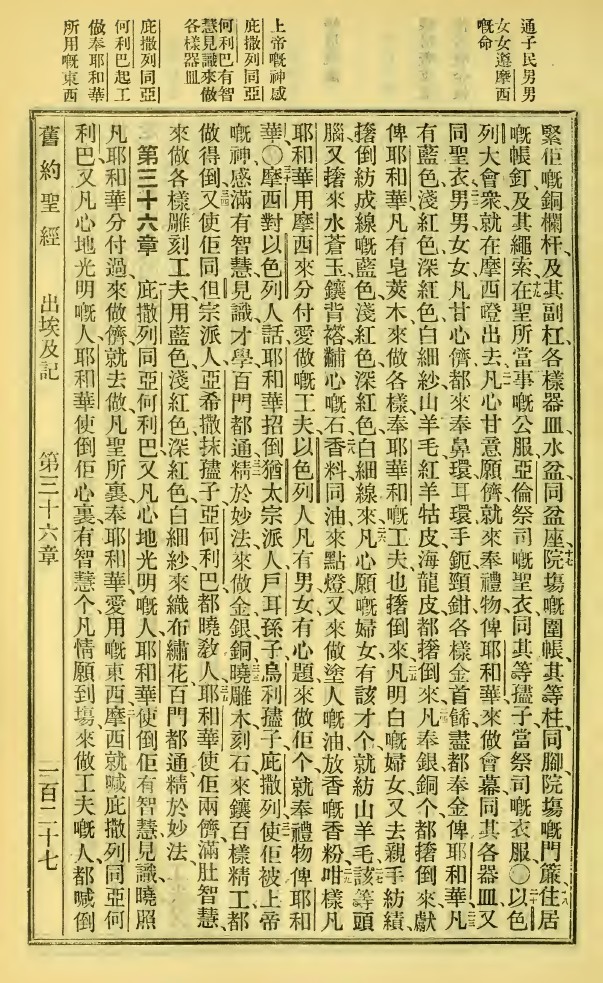 通子民男男
女女遵摩西
嘅命
上帝嘅神感
庇撒列同亞
何利巴有智
慧見識來做
各樣器皿
庇撒列同亞
何利巴起工
做奉耶和華
所用嘅東西
緊佢嘅銅欄杆、及其副杠、各樣器皿、水盆、同盆座、十七院塲嘅圍帳、其等柱、同腳、院塲嘅門簾、十八住居
嘅帳釘、及其繩索、十九在聖所當事嘅公服、亞倫祭司嘅聖衣、同其等孻子當祭司嘅衣服、〇二十以色
列大會衆、就在摩西嶝出去、二一凡心甘意願儕、就來奉禮物俾耶和華、來做會幕、同其各器皿、又
同聖衣、二二男男女女、凡甘心儕、都來奉鼻環、耳環、手鈪、頸鉗、各樣金首飾、盡都奉金俾耶和華、二三凡
有藍色、淺紅色、深紅色、白細紗、山羊毛、紅羊牯皮、海龍皮、都㨶倒來、二四凡奉銀銅个、都㨶倒來獻
俾耶和華、凡有皂莢木、來做各樣奉耶和華嘅工夫、也㨶倒來、二五凡明白嘅婦女、又去親手紡績、
㨶倒紡成線嘅藍色、淺紅色、深紅色、白細線來、二六凡心願嘅婦女有該才个、就紡山羊毛、二七該等頭
腦又㨶來水蒼玉、鑲背褡黼心嘅石、二八香料、同油、來點燈、又來做塗人嘅油、放香嘅香粉、二九咁樣凡
耶和華用摩西來分付愛做嘅工夫、以色列人凡有男女有心題來做佢个、就奉禮物俾耶和
華、〇三十摩西對以色列人話、耶和華招倒猶太宗派人、戶耳孫子、烏利孻子、庇撒列、三一使佢被上帝
嘅神感滿、有智慧、見識、才學、百門都通精於妙法、三二來做金銀銅、三三曉雕木刻石來鑲、百樣精工都
做得倒、三四又使佢同但宗派人、亞希撒抹孻子、亞何利巴、都曉敎人、三五耶和華使佢兩儕滿肚智慧、
來做各樣雕刻工夫、用藍色、淺紅色、深紅色、白細紗、來織布繡花、百門都通精於妙法、
第三十六章　一庇撒列同亞何利巴、又凡心地光明嘅人、耶和華使倒佢有智慧見識、曉照
凡耶和華分付過來做儕、就去做凡聖所裏奉耶和華愛用嘅東西、二摩西就喊庇撒列、同亞何
利巴、又凡心地光明嘅人、耶和華使倒佢心裏有智慧个、凡情願到塲來做工夫嘅人、都喊倒
舊約聖經　出埃及記　第三十六章　二百二十七